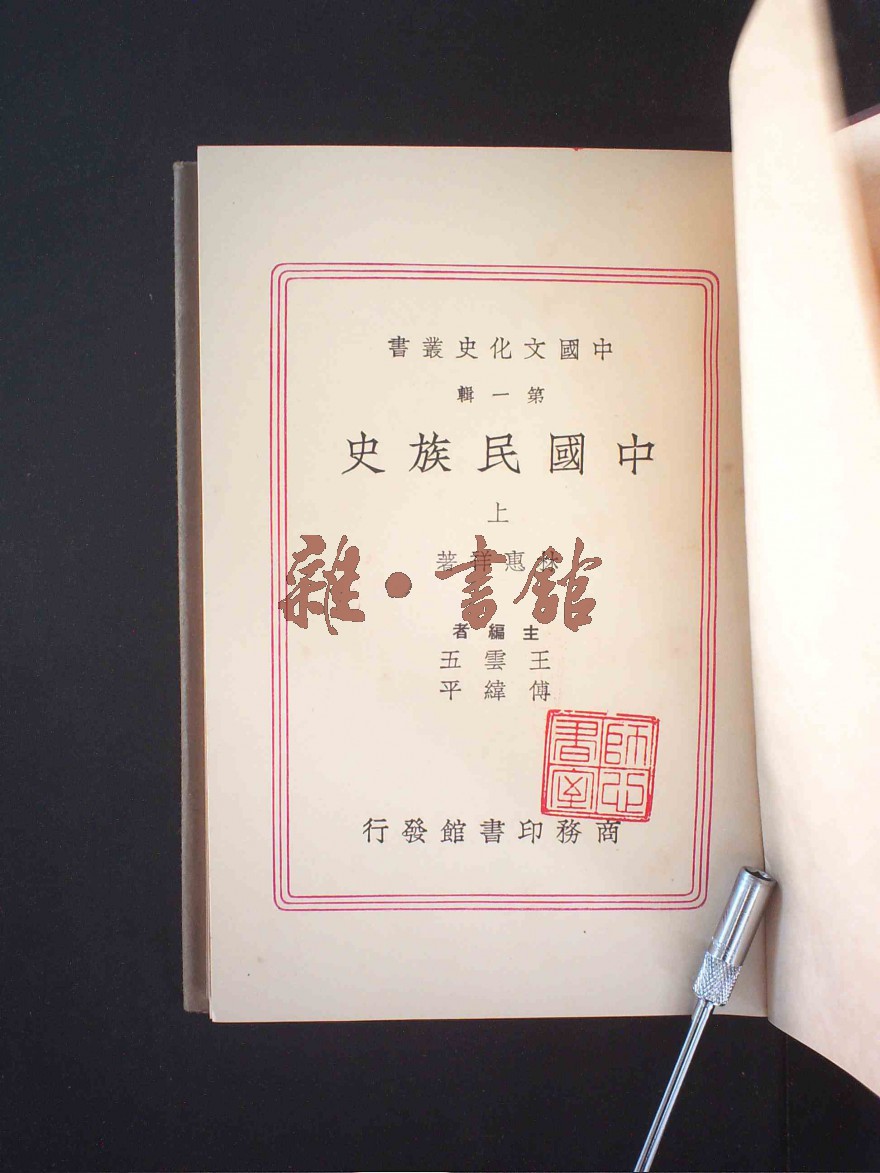 中國文化史叢書
第一輯
中國民族史
上
林惠祥著
雜·書館
主編者
王雲五
傅緯平
師中書室
商務印書館發行